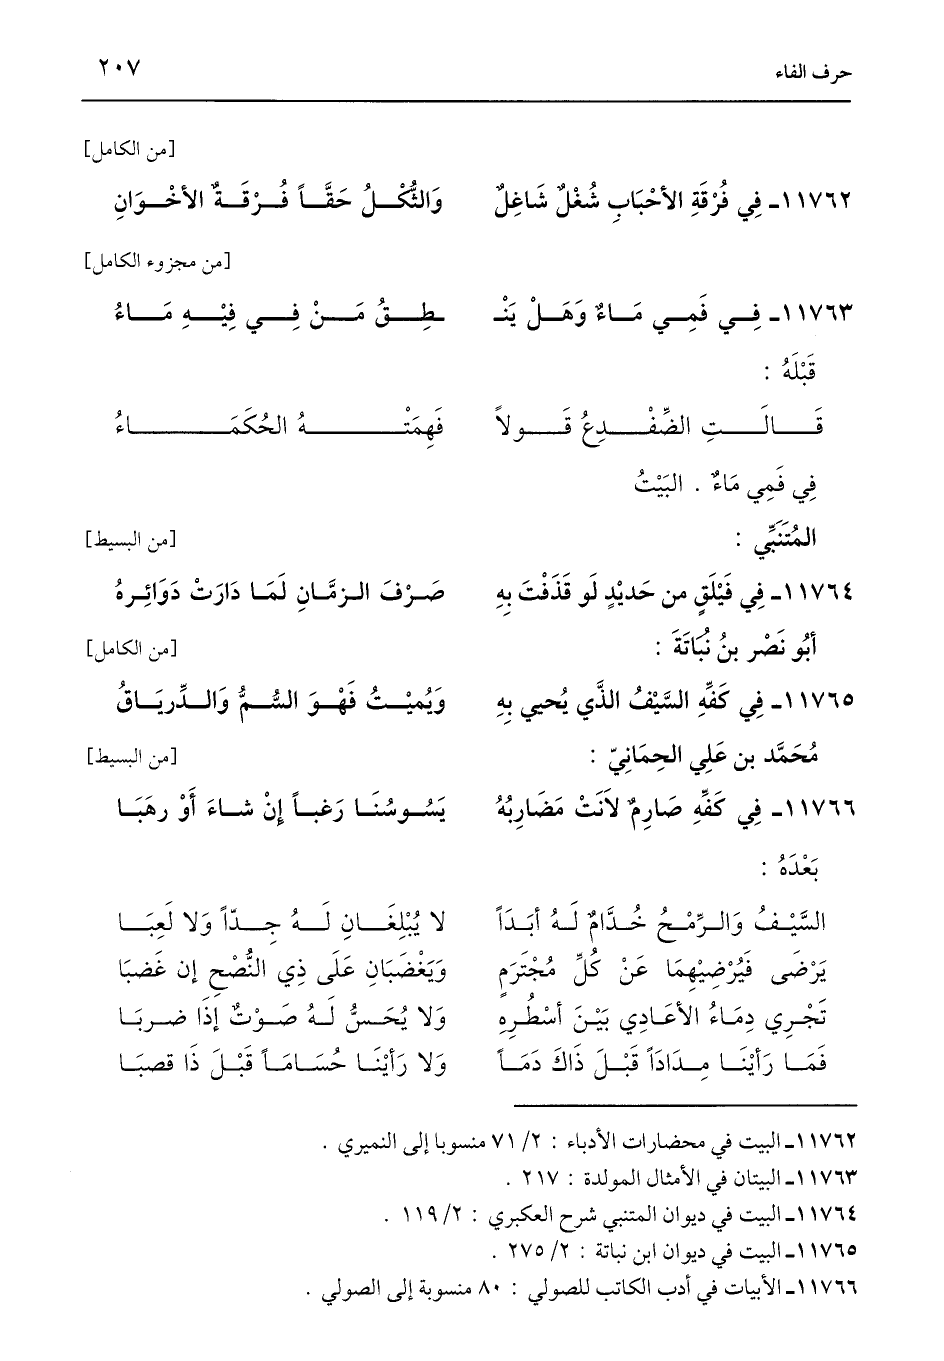 حرف الفاء ٢٠٧
[من الكامل]
١١٧٦٢ـ فِي فُرْقَةِ الأَحْبَابِ شُغْلٌ شَاغِلٌ وَالثُّكْلُ حَقَّاً فُرْقَةُ الأخْوَانِ
[من مجزوء الكامل]
١١٧٦٣ـ فِي فَمِي مَاءٌ وَهَلْ يَنْـ ـطِقُ مَنْ فِي فِيْهِ مَاءُ
قَبْلَهُ :
قَالَتِ الضِّفْدِعُ قَولاً فَهِمَتْهُ الحُكَمَاءُ
فِي فَمِي مَاءٌ . البَيْتُ
المُتَنَبِّي : [من البسيط]
١١٧٦٤ـ فِي فَيْلَقٍ من حَديْدٍ لَو قَذَفْتَ بِهِ صَرْفَ الزمَّانِ لَمَا دَارَتْ دَوَائِرهُ
أبُو نَصْر بنُ نُبَاتَةَ : [من الكامل]
١١٧٦٥ـ فِي كَفِّهِ السَّيْفُ الذَّي يُحيي بِهِ وَيُمِيْتُ فَهْوَ السُّمُّ وَالدِّريَاقُ
مُحَمَّد بن عَلِي الحِمَانِيّ : [من البسيط]
١١٧٦٦ـ فِي كَفِّهِ صَارِمٌ لاَنَتْ مَضَارِبُهُ يَسُوسُنَا رَغباً إنْ شاءَ أوْ رهَبَا
بَعْدَهُ :
السَّيْفُ وَالرِّمْحُ خُدَّامٌ لَهُ أبَدَاً لا يُبْلِغَانِ لَهُ جِدّاً وَلا لَعِبَا
يَرْضَى فَيُرْضِيْهِمَا عَنْ كُلِّ مُجْتَرَمٍ وَيَغْضَبَانِ عَلَى ذِي النُّصْحِ إن غَضبَا
تَجْرِي دِمَاءُ الأعَادِي بَيْنَ أسْطُرِهِ وَلا يُحَسُّ لَهُ صَوْتٌ إذَا ضربَا
فَمَا رَأيْنَا مِدَادَاً قَبْلَ ذَاكَ دَمَاً وَلا رَأيْنَا حُسَامَاً قَبْلَ ذَا قصبَا
١١٧٦٢ـ البيت في محضارات الأدباء : ٢/ ٧١ منسوبا إلى النميري .
١١٧٦٣ـ البيتان في الأمثال المولدة : ٢١٧ .
١١٧٦٤ـ البيت في ديوان المتنبي شرح العكبري : ٢/ ١١٩ .
١١٧٦٥ـ البيت في ديوان ابن نباتة : ٢/ ٢٧٥ .
١١٧٦٦ـ الأبيات في أدب الكاتب للصولي : ٨٠ منسوبة إلى الصولي .